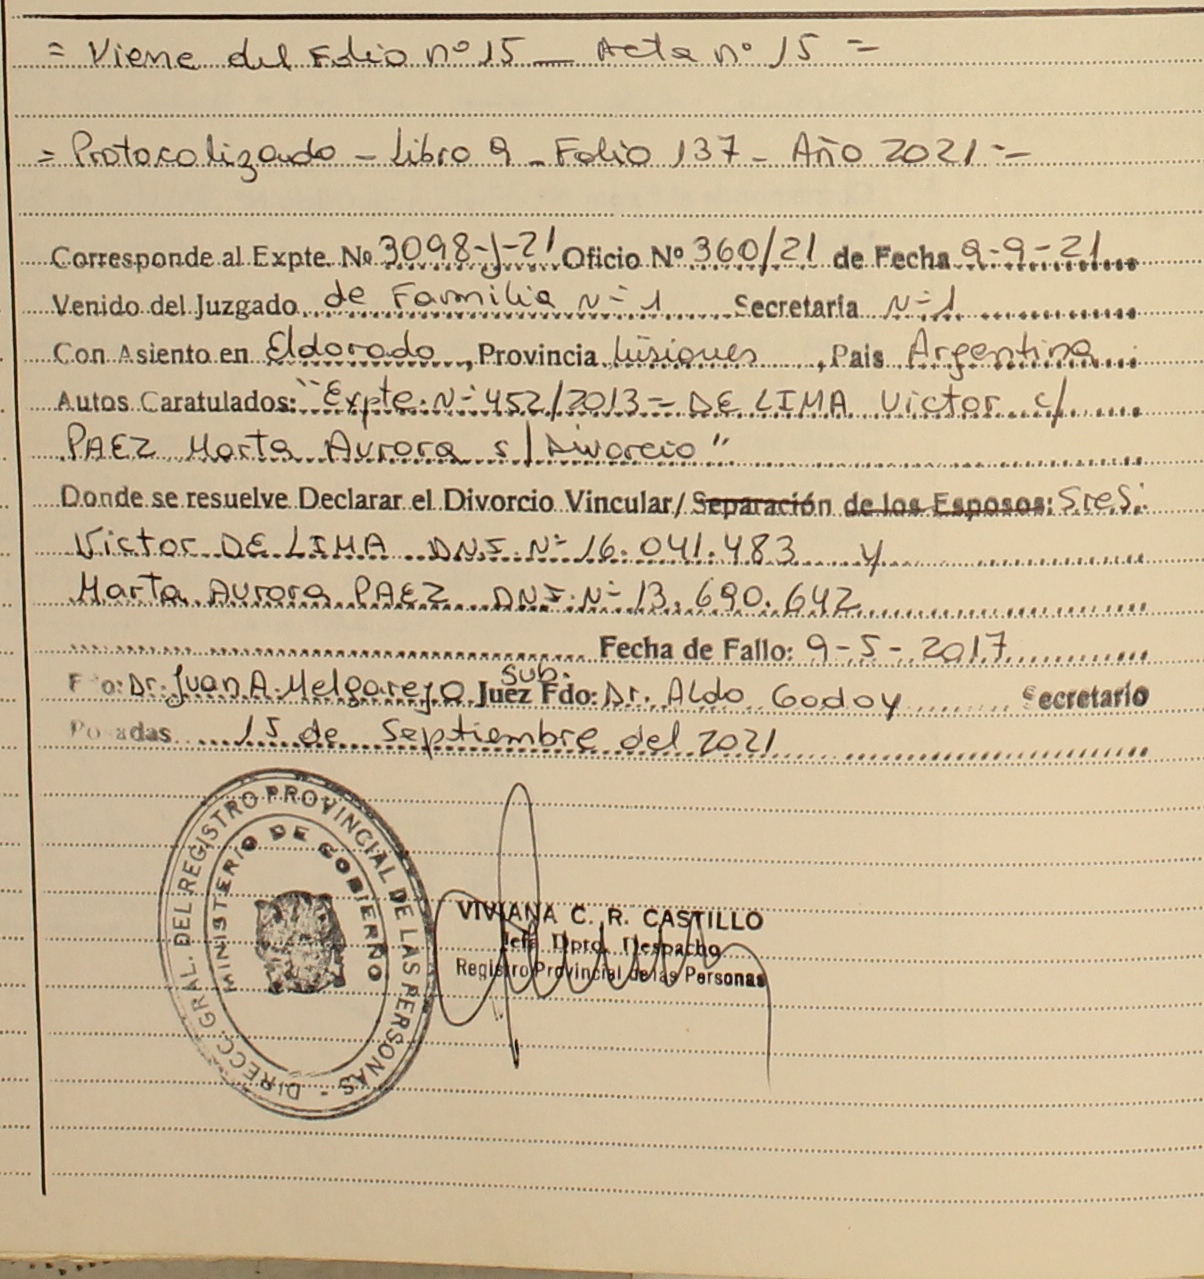 = Viene del Folio nº 15 — Acta nº 15 =
= Protocolizado - Libro 9 - Folio 137 - Año 2021 =
Corresponde al Expte. Nº 3098-J-21 Oficio Nº 360/21 de Fecha 9-9-21
Venido del Juzgado de Familia Nº 1 Secretaría Nº 1
Con Asiento en Eldorado, Provincia Misiones, País Argentina
Autos Caratulados: "Expte. Nº 452/2013 - DE LIMA Victor c/
PAEZ Marta Aurora s/Divorcio"
Donde se resuelve Declarar el Divorcio Vincular/ Separación de los Esposos: Sres.
Victor DE LIMA DNI. Nº 16.041.483 y
Marta Aurora PAEZ DNI. Nº 13.690.642
Fecha de Fallo: 9-5-2017
Fdo: Dr. Juan A. Melgarejo Sub. Juez Fdo: Dr. Aldo Godoy Secretario
Posadas 15 de Septiembre del 2021
DIRECC. GRAL. DEL REGISTRO PROVINCIAL DE LAS PERSONAS -
MINISTERIO DE GOBIERNO
VIVIANA C. R. CASTILLO
Jefa Dpto. Despacho
Registro Provincial de las Personas